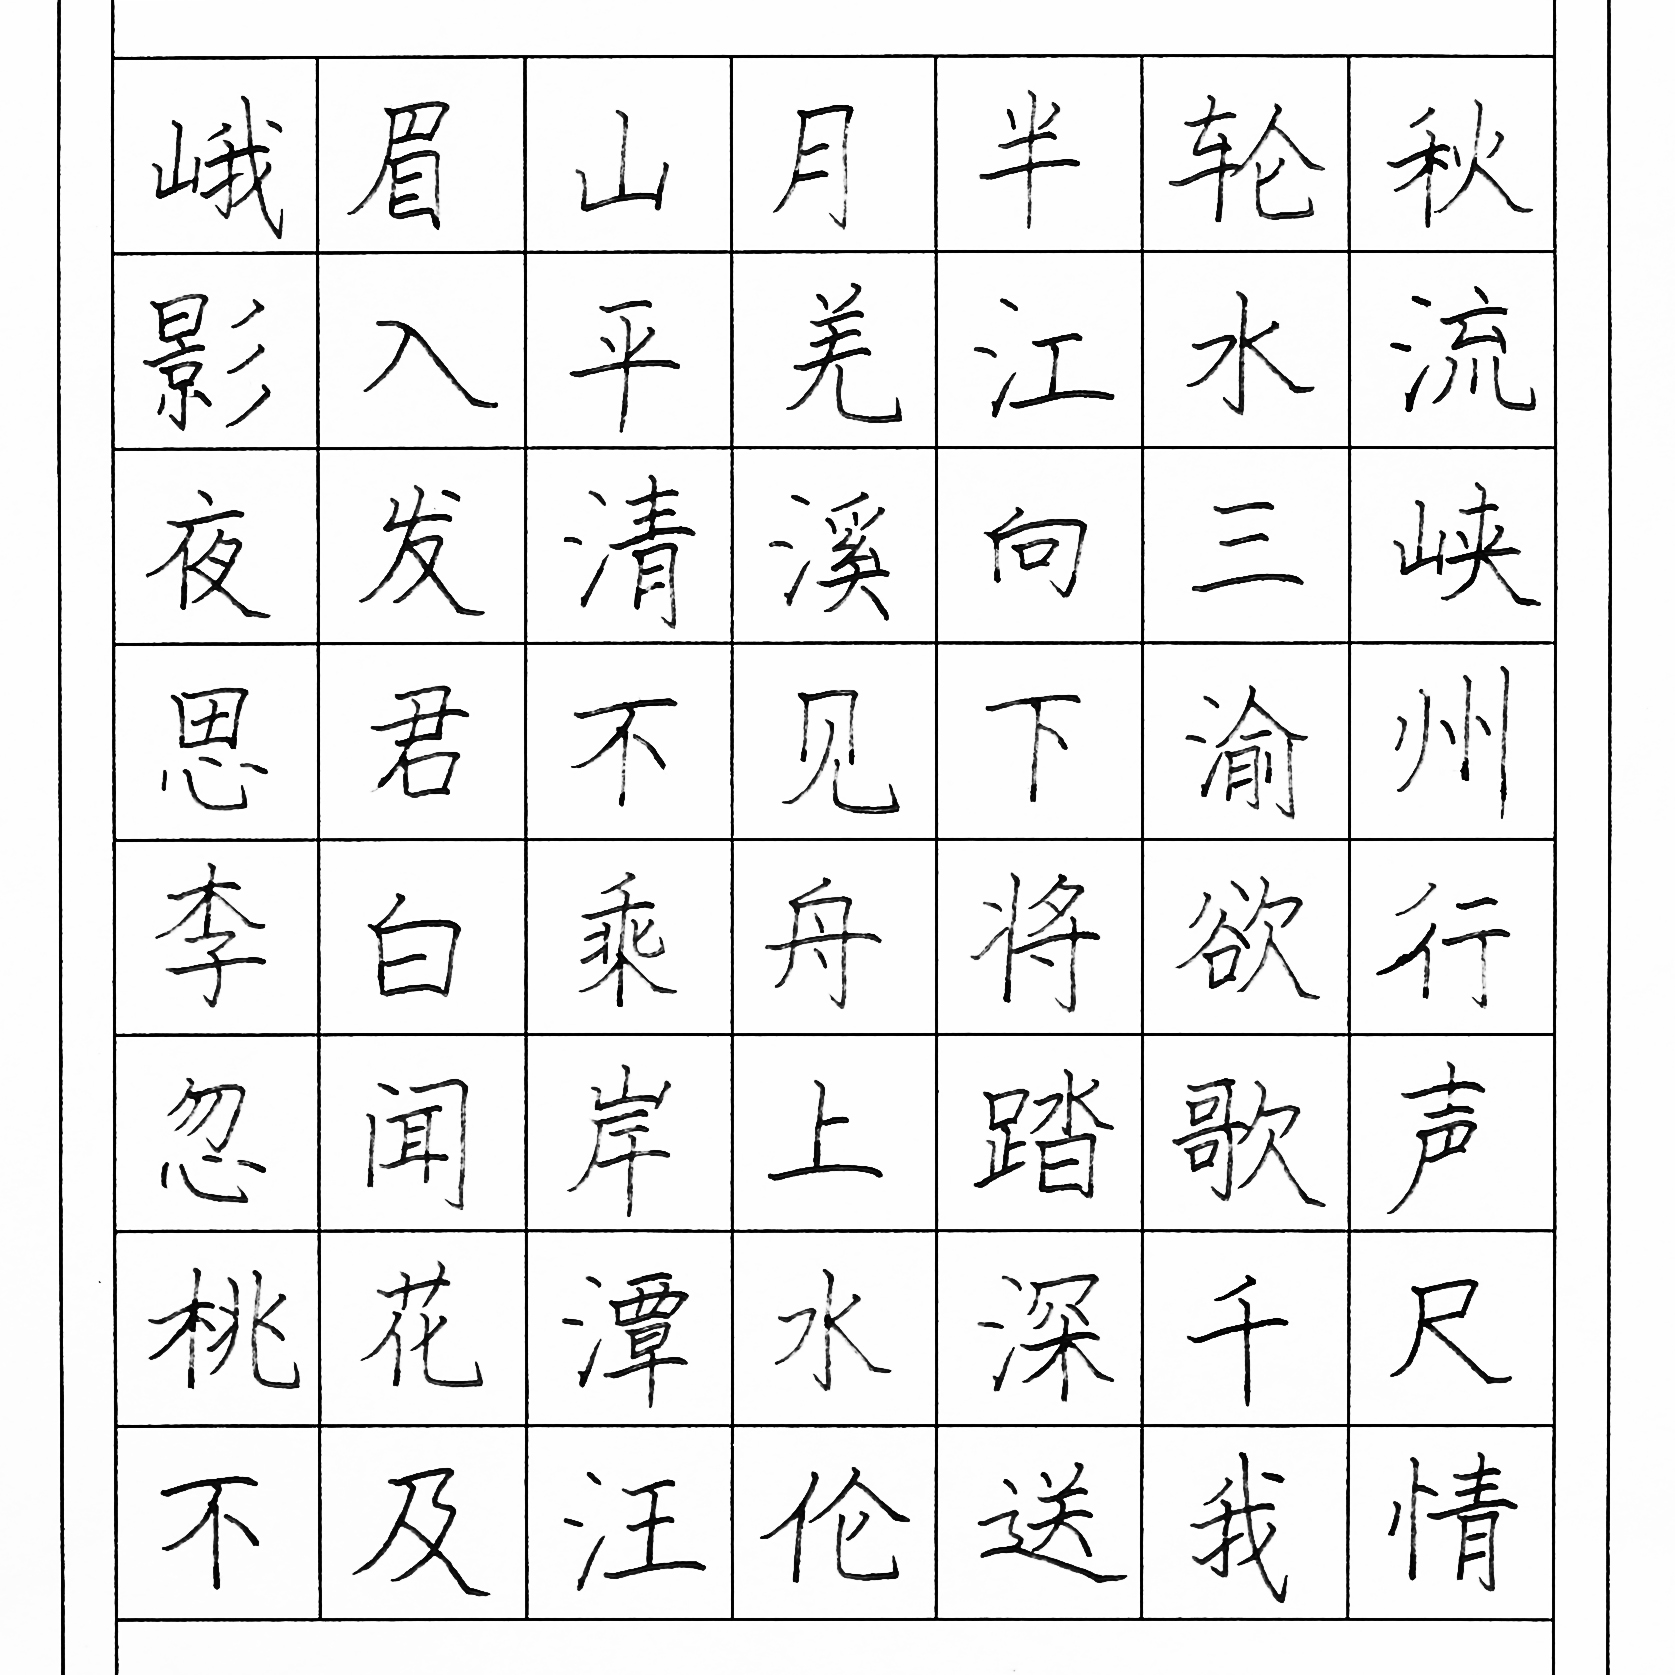 峨眉山月半轮秋
影入平羌江水流
夜发清溪向三峡
思君不见下渝州
李白乘舟将欲行
忽闻岸上踏歌声
桃花潭水深千尺
不及汪伦送我情